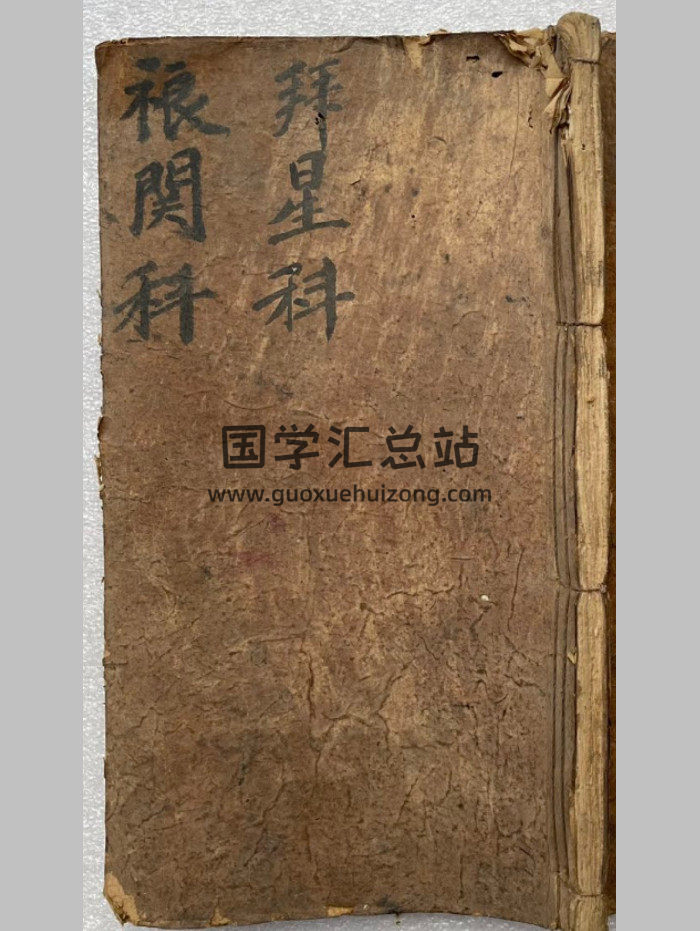 拜星科
禳関科
国学汇总站
www.guoxuehuizong.com